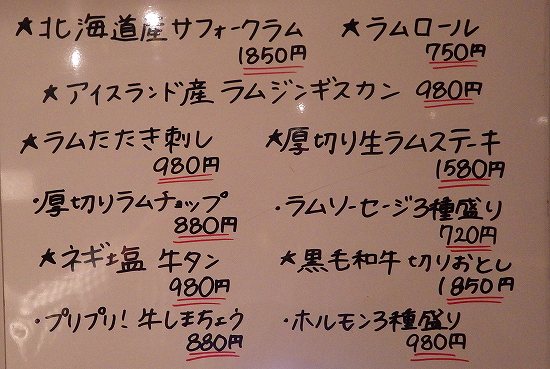 ★北海道産サフォークラム 1850円 ★ラムロール 750円
★アイスランド産 ラムジンギスカン 980円
★ラムたたき刺し 980円 ★厚切り生ラムステーキ 1580円
・厚切りラムチョップ 880円 ・ラムソーセージ3種盛り 720円
★ネギ塩 牛タン 980円 ★黒毛和牛 切りおとし 1850円
・プリプリ!牛しまちょう 880円 ・ホルモン3種盛り 980円